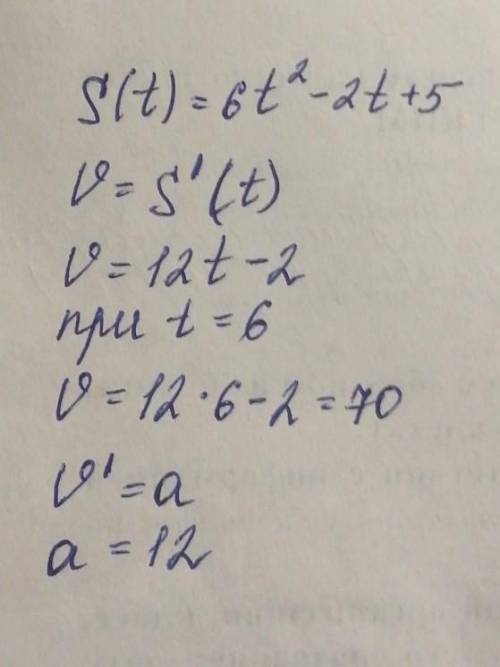 S(t) = 6t² - 2t + 5
v = S'(t)
v = 12t - 2
при t = 6
v = 12 · 6 - 2 = 70
v' = a
a = 12